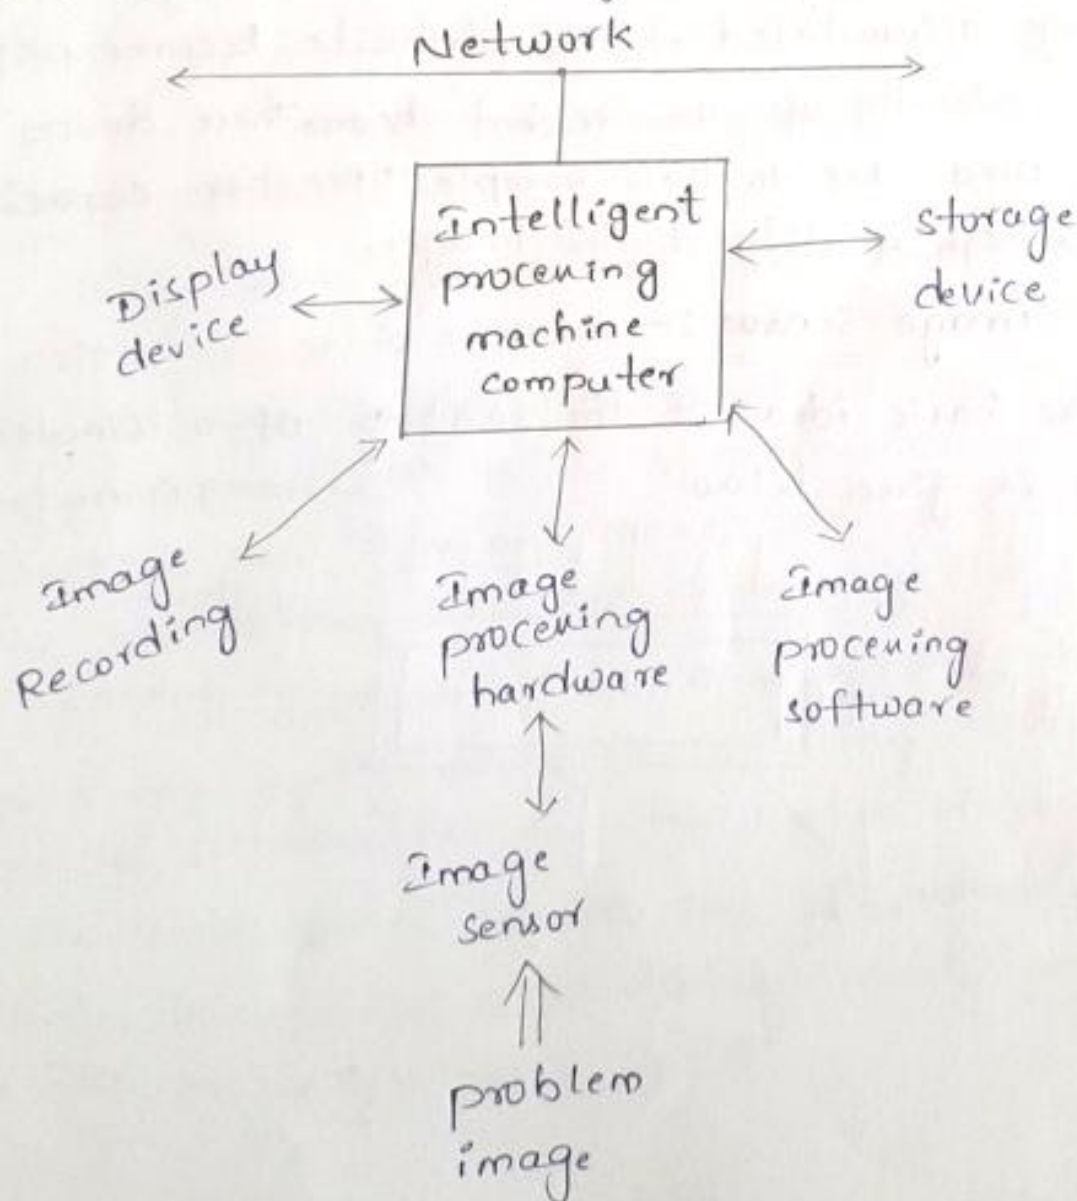 Network
Intelligent
processing
machine
computer
Display
device
storage
device
Image
Recording
Image
processing
hardware
Image
processing
software
Image
sensor
problem
image